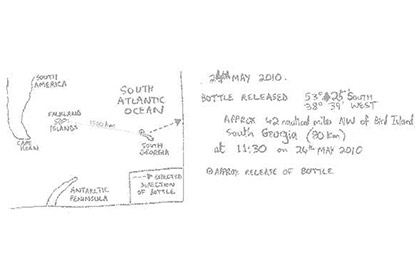 SOUTH
AMERICA
SOUTH
ATLANTIC
OCEAN
FALKLAND
ISLANDS
CAPE
HORN
SOUTH
GEORGIA
ANTARCTIC
PENINSULA
EXPECTED
DIRECTION
OF BOTTLE
MAY 2010.
BOTTLE RELEASED 53° 25' SOUTH
38° 39' WEST
APPROX 42 nautical miles NW of Bird Island
South Georgia (80km)
at 11:30 on 24th MAY 2010
APPROX RELEASE OF BOTTLE